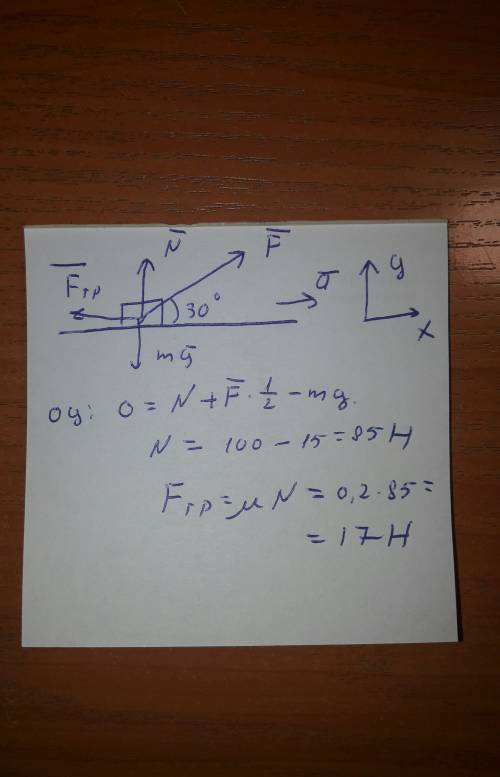 N̄ F̄
F̄тр 30° ā y
x
mḡ
oy: 0 = N + F̄ · 1/2 - mg.
N = 100 - 15 = 85 H
Fтр = μN = 0,2 · 85 =
= 17 H